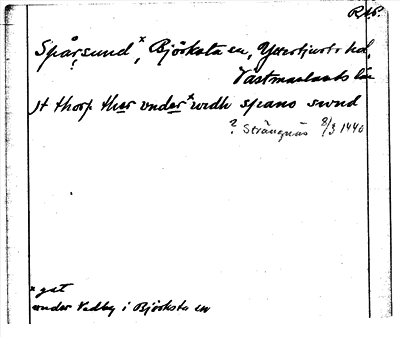 RAP.
Spårsund x, Björksta sn, Yttertjurbo hd,
Västmanlands län
jt thorp ther vnder x widh spano swnd
? Strängnäs 8/3 1440
x gst
under Vedby i Björksta sn